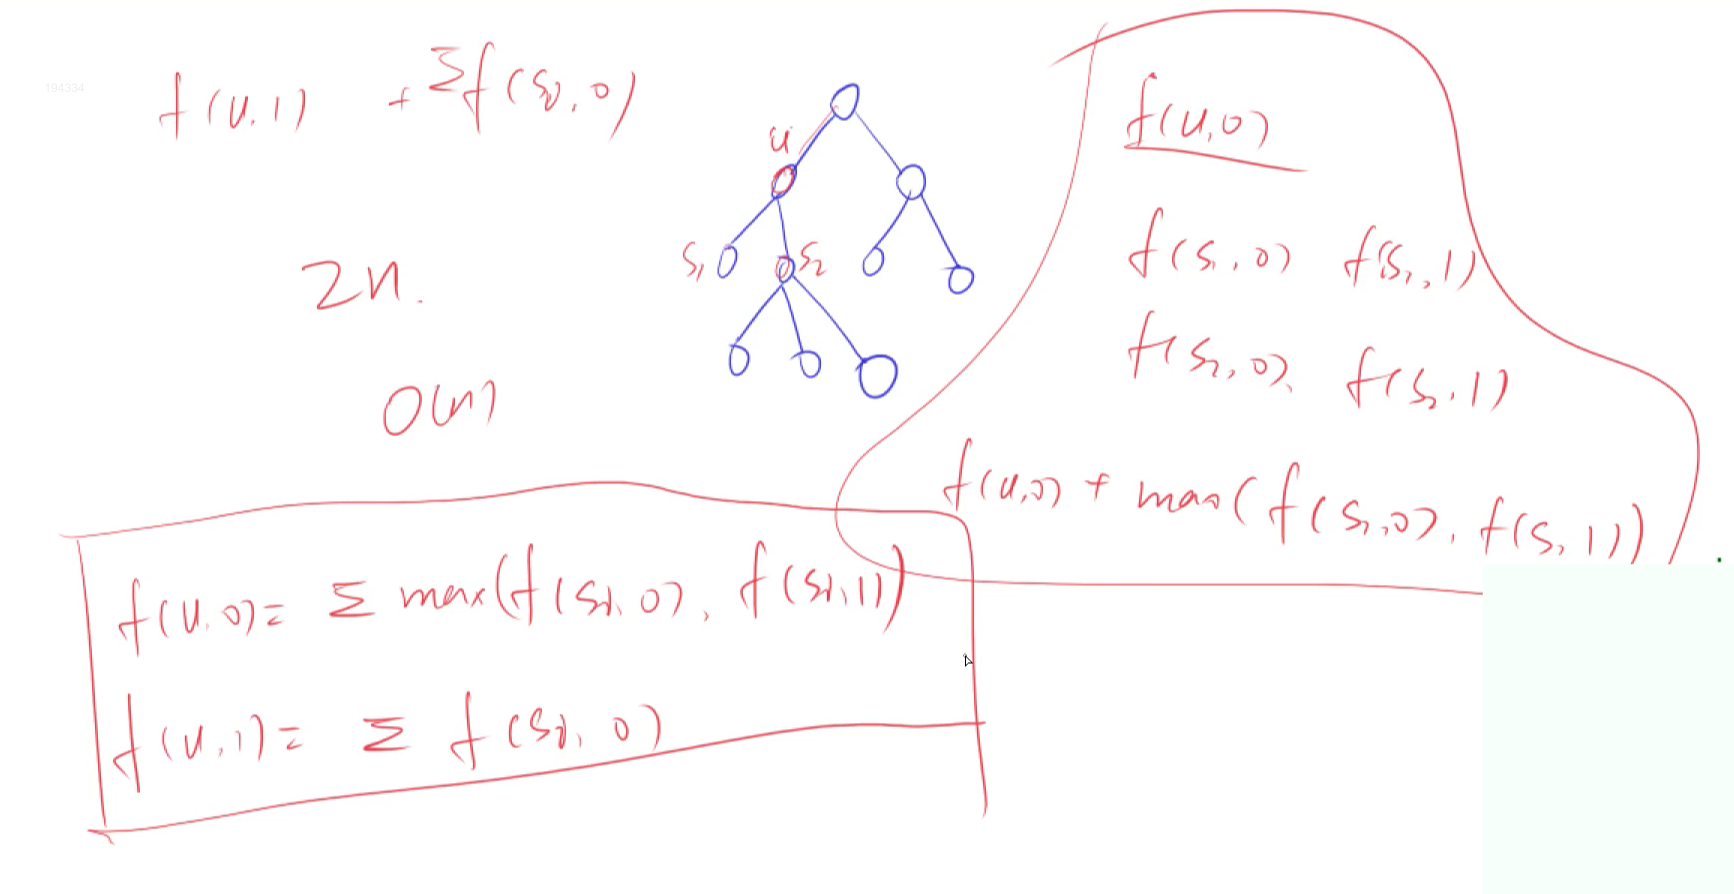 194334
f(u,1) + Σf(si,0)
2n.
O(n)
u
s1
s2
f(u,0)
f(s1,0) f(s1,1)
f(s2,0), f(s2,1)
f(u,0) + max(f(s1,0), f(s1,1))
f(u,0)= Σ max(f(si,0), f(si,1))
f(u,1)= Σ f(si,0)